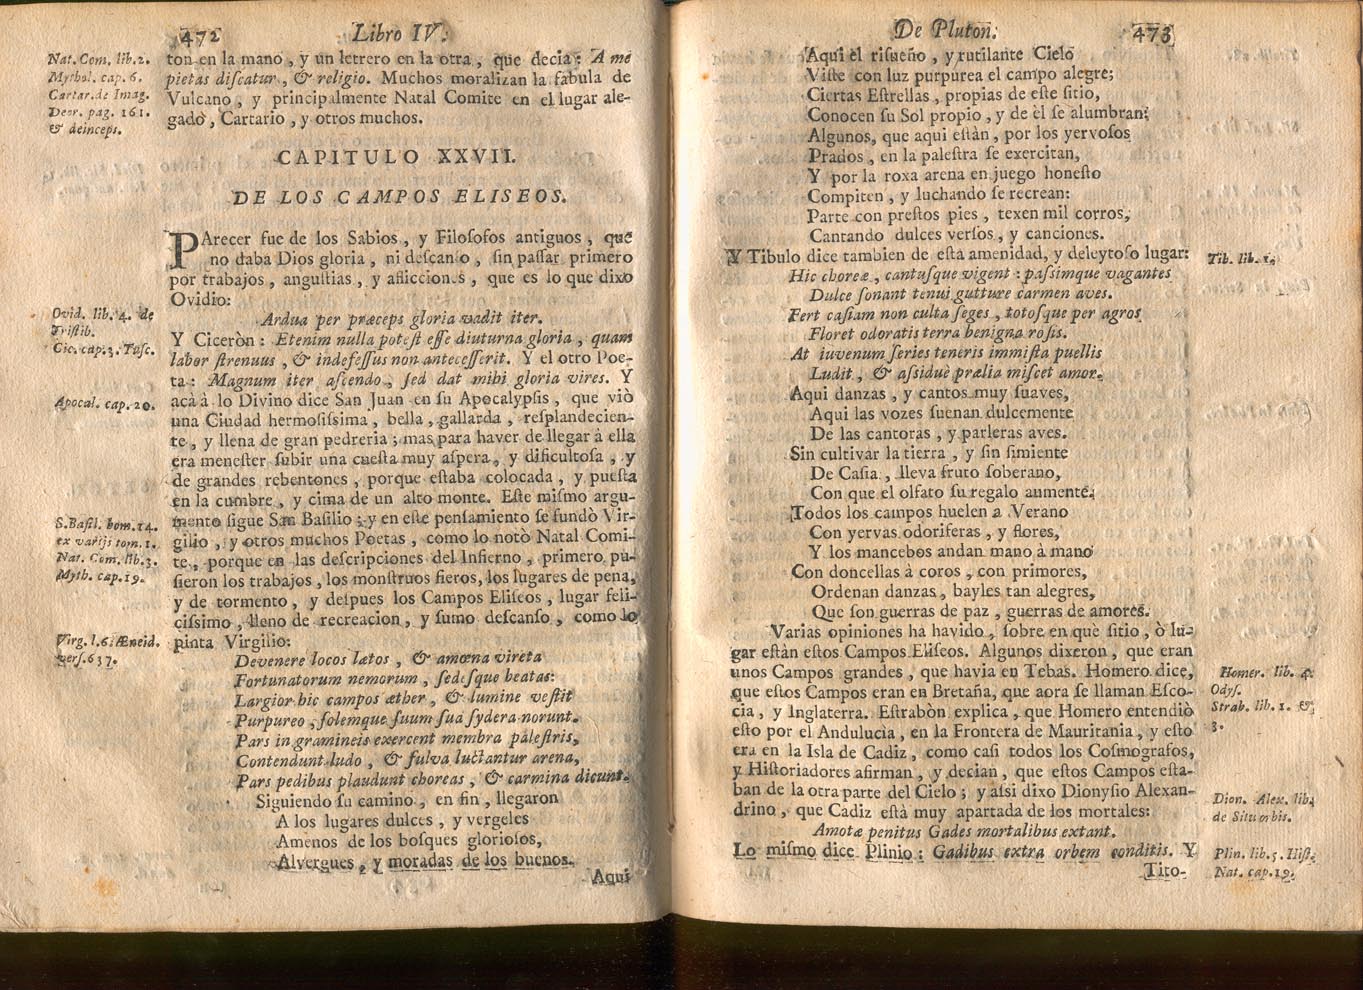 472 Libro IV.
Nat. Com. lib. 2.
Mythol. cap. 6.
Cartar. de Imag.
Deor. pag. 161.
& deinceps.
ton en la mano, y un letrero en la otra, que decia: A me
pietas discatur, & religio. Muchos moralizan la fabula de
Vulcano, y principalmente Natal Comite en el lugar ale-
gado, Cartario, y otros muchos.
CAPITULO XXVII.
DE LOS CAMPOS ELISEOS.
PArecer fue de los Sabios, y Filosofos antiguos, que
no daba Dios gloria, ni descanso, sin passar primero
por trabajos, angustias, y aflicciones, que es lo que dixo
Ovidio:
Ovid. lib. 4. de
Tristib.
Ardua per præceps gloria vadit iter.
Cic. cap. 3. Tusc.
Y Ciceròn: Etenim nulla potest esse diuturna gloria, quam
labor strenuus, & indefessus non antecesserit. Y el otro Poe-
ta: Magnum iter ascendo, sed dat mihi gloria vires. Y
Apocal. cap. 20.
acà à lo Divino dice San Juan en su Apocalypsis, que viò
una Ciudad hermosissima, bella, gallarda, resplandecien-
te, y llena de gran pedreria; mas para haver de llegar à ella
era menester subir una cuesta muy aspera, y dificultosa, y
de grandes rebentones, porque estaba colocada, y puesta
en la cumbre, y cima de un alto monte. Este mismo argu-
S. Basil. hom. 14.
ex varijs tom. 1.
Nat. Com. lib. 3.
Myth. cap. 19.
mento sigue San Basilio; y en este pensamiento se fundò Vir-
gilio, y otros muchos Poetas, como lo notò Natal Comi-
te, porque en las descripciones del Infierno, primero pu-
sieron los trabajos, los monstruos fieros, los lugares de pena,
y de tormento, y despues los Campos Eliseos, lugar feli-
cissimo, lleno de recreacion, y sumo descanso, como lo
Virg. l. 6. Æneid.
vers. 637.
pinta Virgilio:
Devenere locos lætos, & amœna vireta
Fortunatorum nemorum, sedesque beatas:
Largior hic campos æther, & lumine vestit
Purpureo, solemque suum sua sydera norunt.
Pars in gramineis exercent membra palestris,
Contendunt ludo, & fulva luctantur arena,
Pars pedibus plaudunt choreas, & carmina dicunt.
Siguiendo su camino, en fin, llegaron
A los lugares dulces, y vergeles
Amenos de los bosques gloriosos,
Alvergues, y moradas de los buenos.
Aqui
De Pluton. 473
Aqui el risueño, y rutilante Cielo
Viste con luz purpurea el campo alegre;
Ciertas Estrellas, propias de este sitio,
Conocen su Sol propio, y de èl se alumbran:
Algunos, que aqui estàn, por los yervosos
Prados, en la palestra se exercitan,
Y por la roxa arena en juego honesto
Compiten, y luchando se recrean:
Parte con prestos pies, texen mil corros,
Cantando dulces versos, y canciones.
Y Tibulo dice tambien de esta amenidad, y deleytoso lugar:
Tib. lib. 1.
Hic choreæ, cantusque vigent: passimque vagantes
Dulce sonant tenui gutture carmen aves.
Fert casiam non culta seges, totosque per agros
Floret odoratis terra benigna rosis.
At iuvenum series teneris immista puellis
Ludit, & assiduè prælia miscet amor.
Aqui danzas, y cantos muy suaves,
Aqui las vozes suenan dulcemente
De las cantoras, y parleras aves.
Sin cultivar la tierra, y sin simiente
De Casia, lleva fruto soberano,
Con que el olfato su regalo aumente.
Todos los campos huelen a Verano
Con yervas odoriferas, y flores,
Y los mancebos andan mano à mano
Con doncellas à coros, con primores,
Ordenan danzas, bayles tan alegres,
Que son guerras de paz, guerras de amores.
Varias opiniones ha havido, sobre en què sitio, ò lu-
gar estàn estos Campos Eliseos. Algunos dixeron, que eran
unos Campos grandes, que havia en Tebas. Homero dice,
Homer. lib. 4.
Odys.
que estos Campos eran en Bretaña, que aora se llaman Esco-
Strab. lib. 1. &
3.
cia, y Inglaterra. Estrabòn explica, que Homero entendiò
esto por el Andulucia, en la Frontera de Mauritania, y esto
era en la Isla de Cadiz, como casi todos los Cosmografos,
y Historiadores afirman, y decian, que estos Campos esta-
ban de la otra parte del Cielo; y assi dixo Dionysio Alexan-
Dion. Alex. lib.
de Situ orbis.
drino, que Cadiz està muy apartada de los mortales:
Amotæ penitus Gades mortalibus extant.
Lo mismo dice Plinio: Gadibus extra orbem conditis. Y
Plin. lib. 5. Hist.
Nat. cap. 19.
Tito-